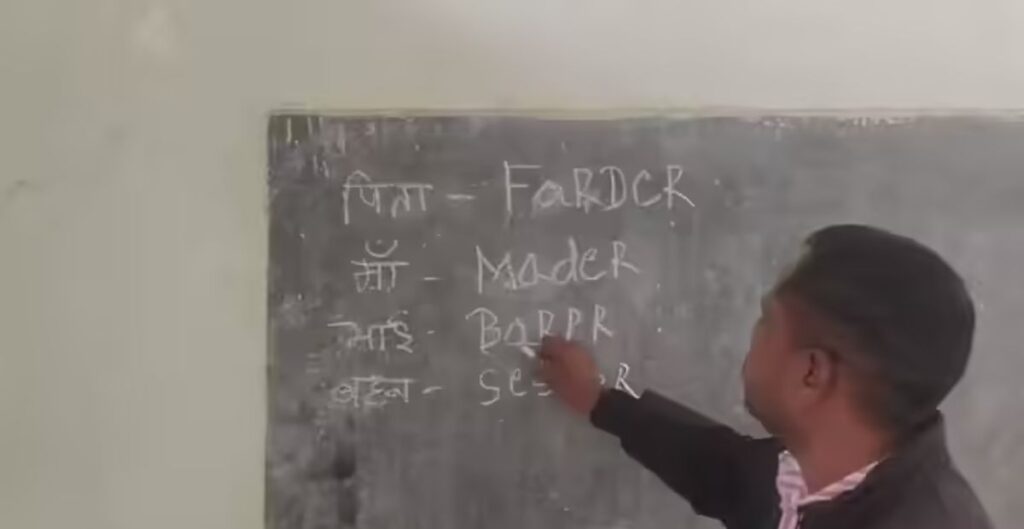 पिता - FaRDCR
माँ - MadeR
भाई - BaRPR
बहन -